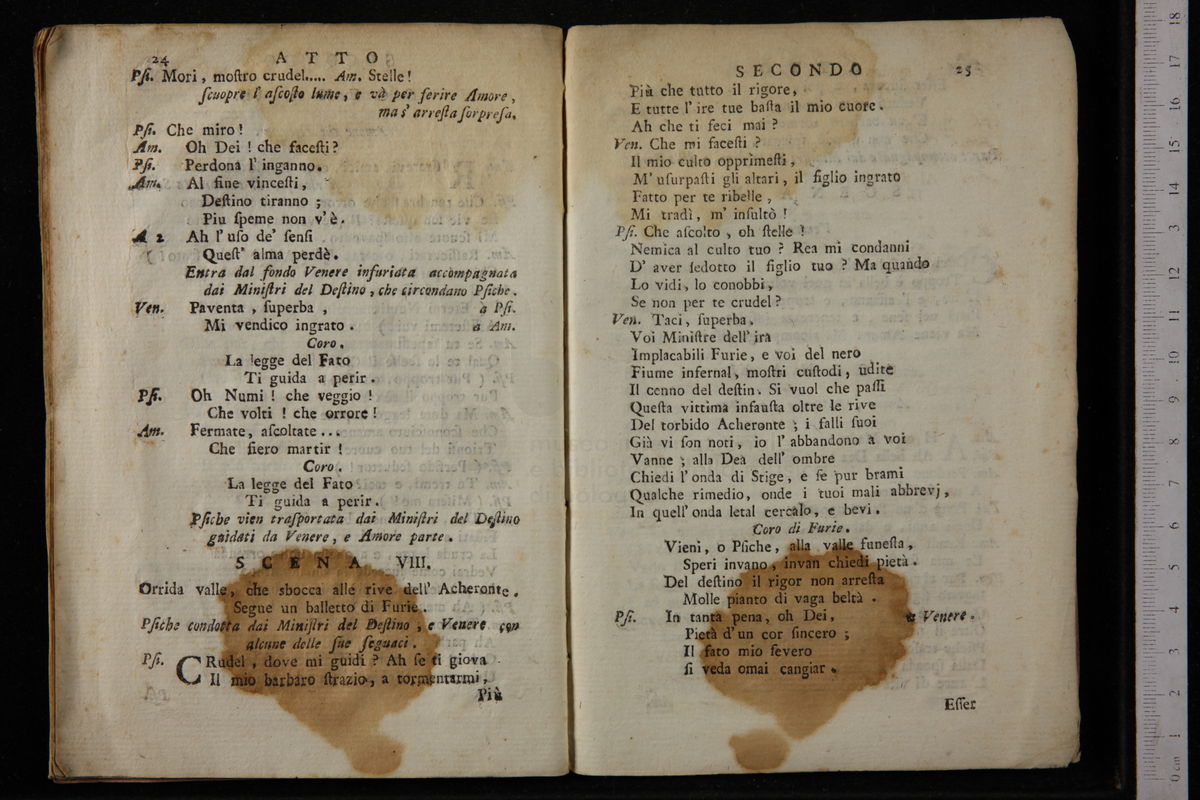 24 ATTO
Psi. Mori, moſtro crudel..... Am. Stelle!
ſcuopre l' aſcoſto lume, e và per ferire Amore,
ma s' arreſta ſorpreſa.
Pſi. Che miro!
Am. Oh Dei! che faceſti?
Pſi. Perdona l' inganno.
Am. Al fine vinceſti,
Deſtino tiranno;
Piu ſpeme non v'è.
A 2 Ah l' uſo de' ſenſi
Queſt' alma perdè.
Entra dal fondo Venere infuriata accompagnata
dai Miniſtri del Deſtino, che circondano Pſiche.
Ven. Paventa, ſuperba, à Pſi.
Mi vendico ingrato. a Am.
Coro.
La legge del Fato
Ti guida a perir.
Pſi. Oh Numi! che veggio!
Che volti! che orrore!
Am. Fermate, aſcoltate...
Che fiero martir!
Coro.
La legge del Fato
Ti guida a perir.
Pſiche vien traſportata dai Miniſtri del Deſtino
guidati da Venere, e Amore parte.
SCENA VIII.
Orrida valle, che sbocca alle rive dell' Acheronte.
Segue un balletto di Furie.
Pſiche condotta dai Miniſtri del Deſtino, e Venere con
alcune delle ſue ſeguaci.
Pſi. CRudel, dove mi guidi? Ah ſe ti giova
Il mio barbaro ſtrazio, a tormentarmi,
Più
SECONDO 25
Più che tutto il rigore,
E tutte l' ire tue baſta il mio cuore.
Ah che ti feci mai?
Ven. Che mi faceſti?
Il mio culto opprimeſti,
M' uſurpaſti gli altari, il figlio ingrato
Fatto per te ribelle,
Mi tradì, m' inſultò!
Pſi. Che aſcolto, oh ſtelle!
Nemica al culto tuo? Rea mi condanni
D' aver ſedotto il figlio tuo? Ma quando
Lo vidi, lo conobbi,
Se non per te crudel?
Ven. Taci, ſuperba.
Voi Miniſtre dell' ira
Implacabili Furie, e voi del nero
Fiume infernal, moſtri cuſtodi, udite
Il cenno del deſtin. Si vuol che paſſi
Queſta vittima infauſta oltre le rive
Del torbido Acheronte; i falli ſuoi
Già vi ſon noti, io l' abbandono a voi
Vanne; alla Dea dell' ombre
Chiedi l' onda di Stige, e ſe pur brami
Qualche rimedio, onde i tuoi mali abbrevj,
In quell' onda letal cercalo, e bevi.
Coro di Furie.
Vieni, o Pſiche, alla valle funeſta,
Speri invano, invan chiedi pietà.
Del deſtino il rigor non arreſta
Molle pianto di vaga beltà.
Pſi. In tanta pena, oh Dei, a Venere.
Pietà d'un cor ſincero;
Il fato mio ſevero
ſi veda omai cangiar.
Eſſer
0 cm 1 2 3 4 5 6 7 8 9 10 11 12 13 14 15 16 17 18